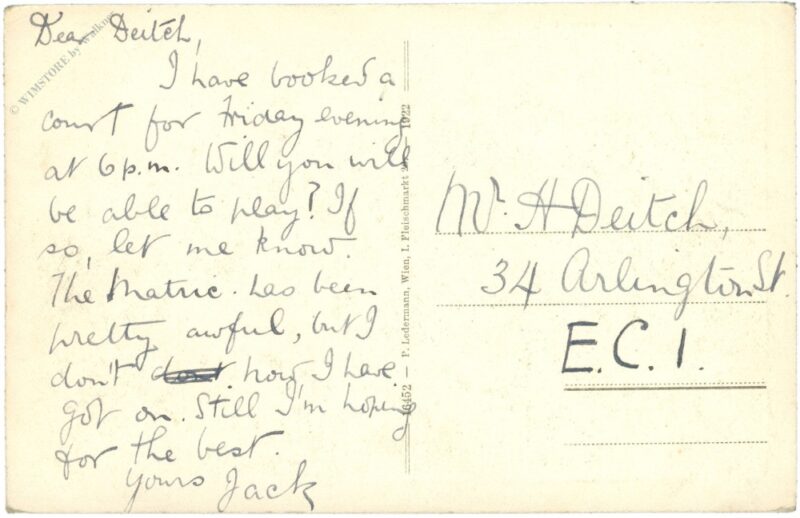 Dear Deitch,
I have booked a
court for Friday evening
at 6 p.m. Will you will
be able to play? If
so, let me know.
The Matric. has been
pretty awful, but I
don't how I have
got on. Still I'm hoping
for the best.
Yours Jack
Mr. H Deitch,
34 Arlington St.
E.C.1.
16452 – F. Ledermann, Wien, I. Fleischmarkt – 1922
© WIMSTORE by